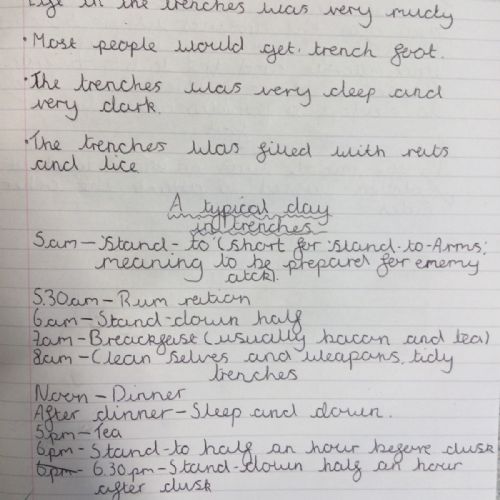 Life in the trenches was very mucky
• Most people would get trench foot.
• The trenches was very deep and
very dark.
• The trenches was filled with rats
and lice
A typical day
in trenches
5am - 'Stand-to' (short for 'Stand-to-Arms',
meaning to be prepared for enemy
atck).
5.30am - Rum ration
6am - Stand-down half
7am - Breackfase (usually bacon and tea)
8am - Clean selves and weapons, tidy
trenches
Noon - Dinner
After dinner - Sleep and down.
5pm - Tea
6pm - Stand-to half an hour before dusk
6pm - 6.30pm - Stand-down half an hour
after dusk